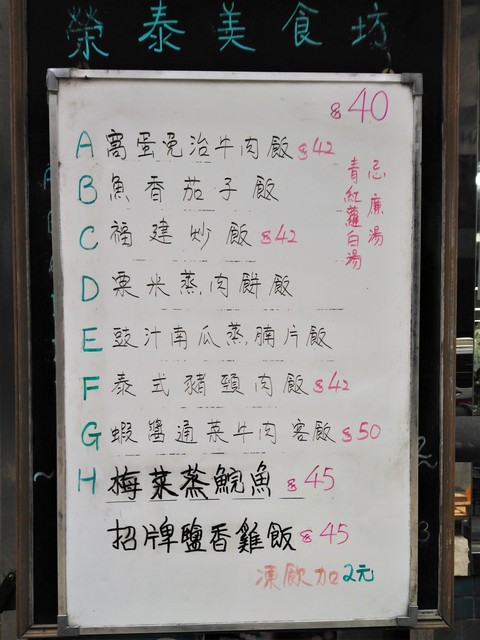 榮泰美食坊
$40
A 窩蛋免治牛肉飯 $42
B 魚香茄子飯
C 福建炒飯 $42
D 粟米蒸肉餅飯
E 豉汁南瓜蒸腩片飯
F 泰式豬頸肉飯 $42
G 蝦醬通菜牛肉客飯 $50
H 梅菜蒸鯇魚 $45
招牌鹽香雞飯 $45
凍飲加2元
忌廉湯
青紅蘿蔔湯